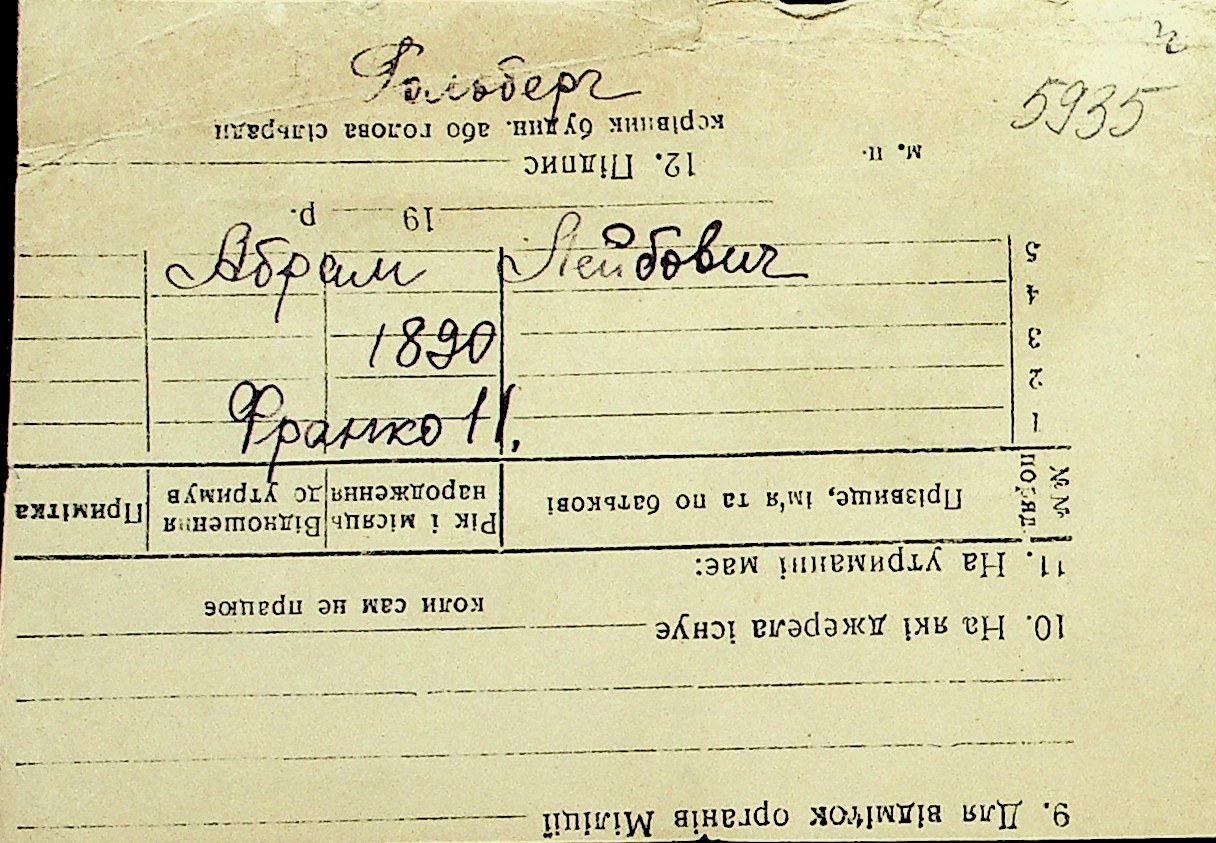 Гольберг
5935
Абрам Лейбович
1890
Франко 11.
9. Для відміток органів Міліції
10. На які джерела існує
коли сам не працює
11. На утриманні має:
№№ поряд. Прізвище, ім'я та по батькові Рік і місяць народження Відношення до утримув Примітка
1
2
3
4
5
19 р.
м. п. 12. Підпис
керівник будин. або голова сільради